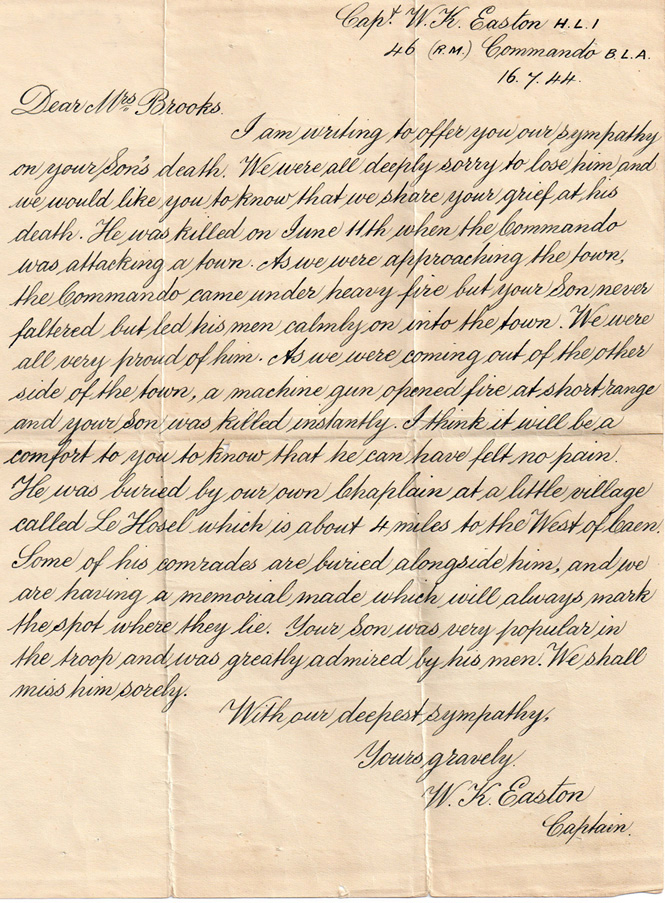 Capt. W. K. Easton H.L.I
46 (R.M.) Commando B.L.A.
16.7.44.
Dear Mrs Brooks.
I am writing to offer you our sympathy
on your Son's death. We were all deeply sorry to lose him and
we would like you to know that we share your grief at his
death. He was killed on June 11th when the Commando
was attacking a town. As we were approaching the town,
the Commando came under heavy fire but your Son never
faltered but led his men calmly on into the town. We were
all very proud of him. As we were coming out of the other
side of the town, a machine gun opened fire at short range
and your Son was killed instantly. I think it will be a
comfort to you to know that he can have felt no pain.
He was buried by our own Chaplain at a little village
called Le Hosel which is about 4 miles to the West of Caen.
Some of his comrades are buried alongside him, and we
are having a memorial made which will always mark
the spot where they lie. Your Son was very popular in
the troop and was greatly admired by his men. We shall
miss him sorely.
With our deepest sympathy,
Yours gravely.
W. K. Easton
Captain.